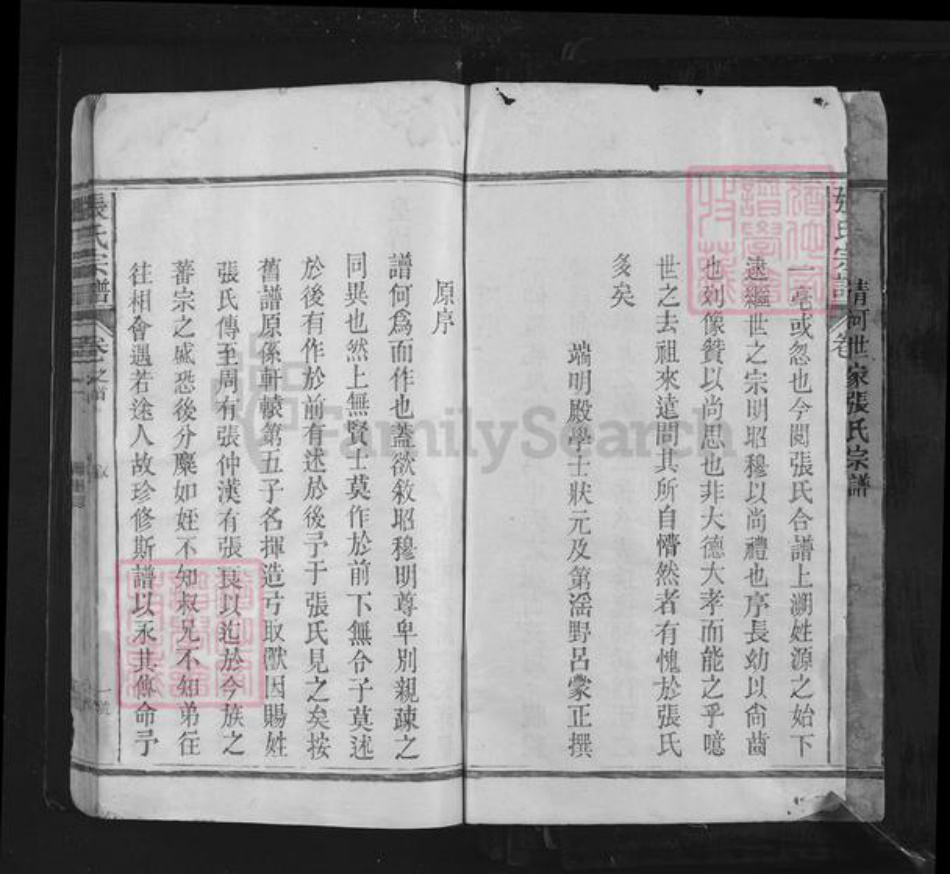 清河世家張氏宗譜
張氏宗譜 卷
一亳或忽也今閱張氏合譜上溯姓源之始下
逮繼世之宗明昭穆以尚禮也序長幼以尙齒
也列像贊以尚思也非大德大孝而能之乎噫
世之去祖來遠問其所自懵然者有愧於張氏
多矣
端明殿學士狀元及第滛野呂蒙正撰
原序
譜何爲而作也蓋欲敘昭穆明尊卑別親疎之
同異也然上無賢士莫作於前下無令子莫述
於後有作於前有述於後予于張氏見之矣按
舊譜原係軒轅第五子名揮造弓取獸因賜姓
張氏傳至周有張仲漢有張良以迄於今族之
蕃宗之盛恐後分麋如姪不知叔兄不知弟徃
往相會遇若途人故珍修斯譜以永其傳命予
張氏宗譜 卷之首 敘
FamilySearch